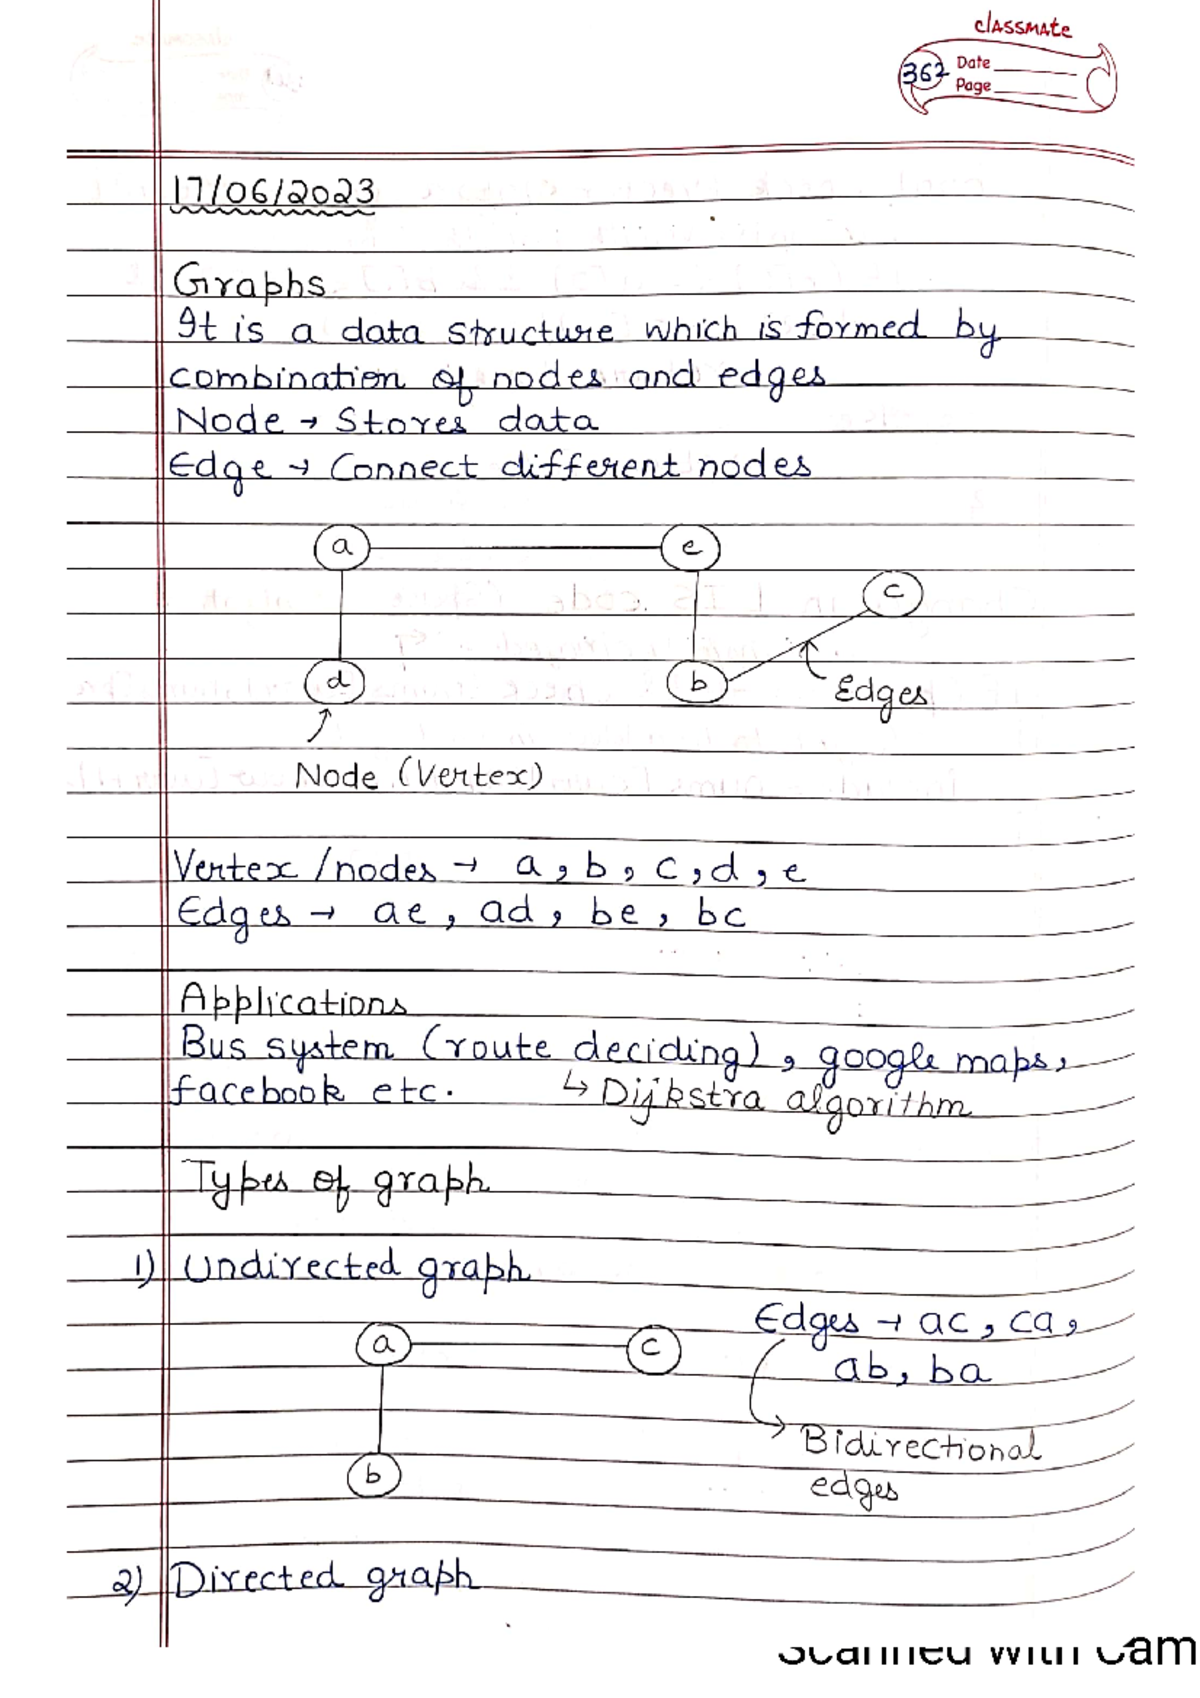 classmate
362
Date
Page
17/06/2023
Graphs
It is a data structure which is formed by
combination of nodes and edges
Node → Stores data
Edge → Connect different nodes
a e
c
d b
Edges
Node (Vertex)
Vertex/nodes → a, b, c, d, e
Edges → ae, ad, be, bc
Applications
Bus system (route deciding), google maps,
facebook etc. ↳ Dijkstra algorithm
Types of graph
1) Undirected graph
Edges → ac, ca,
a c
ab, ba
Bidirectional
b
edges
2) Directed graph
Scanned with Cam